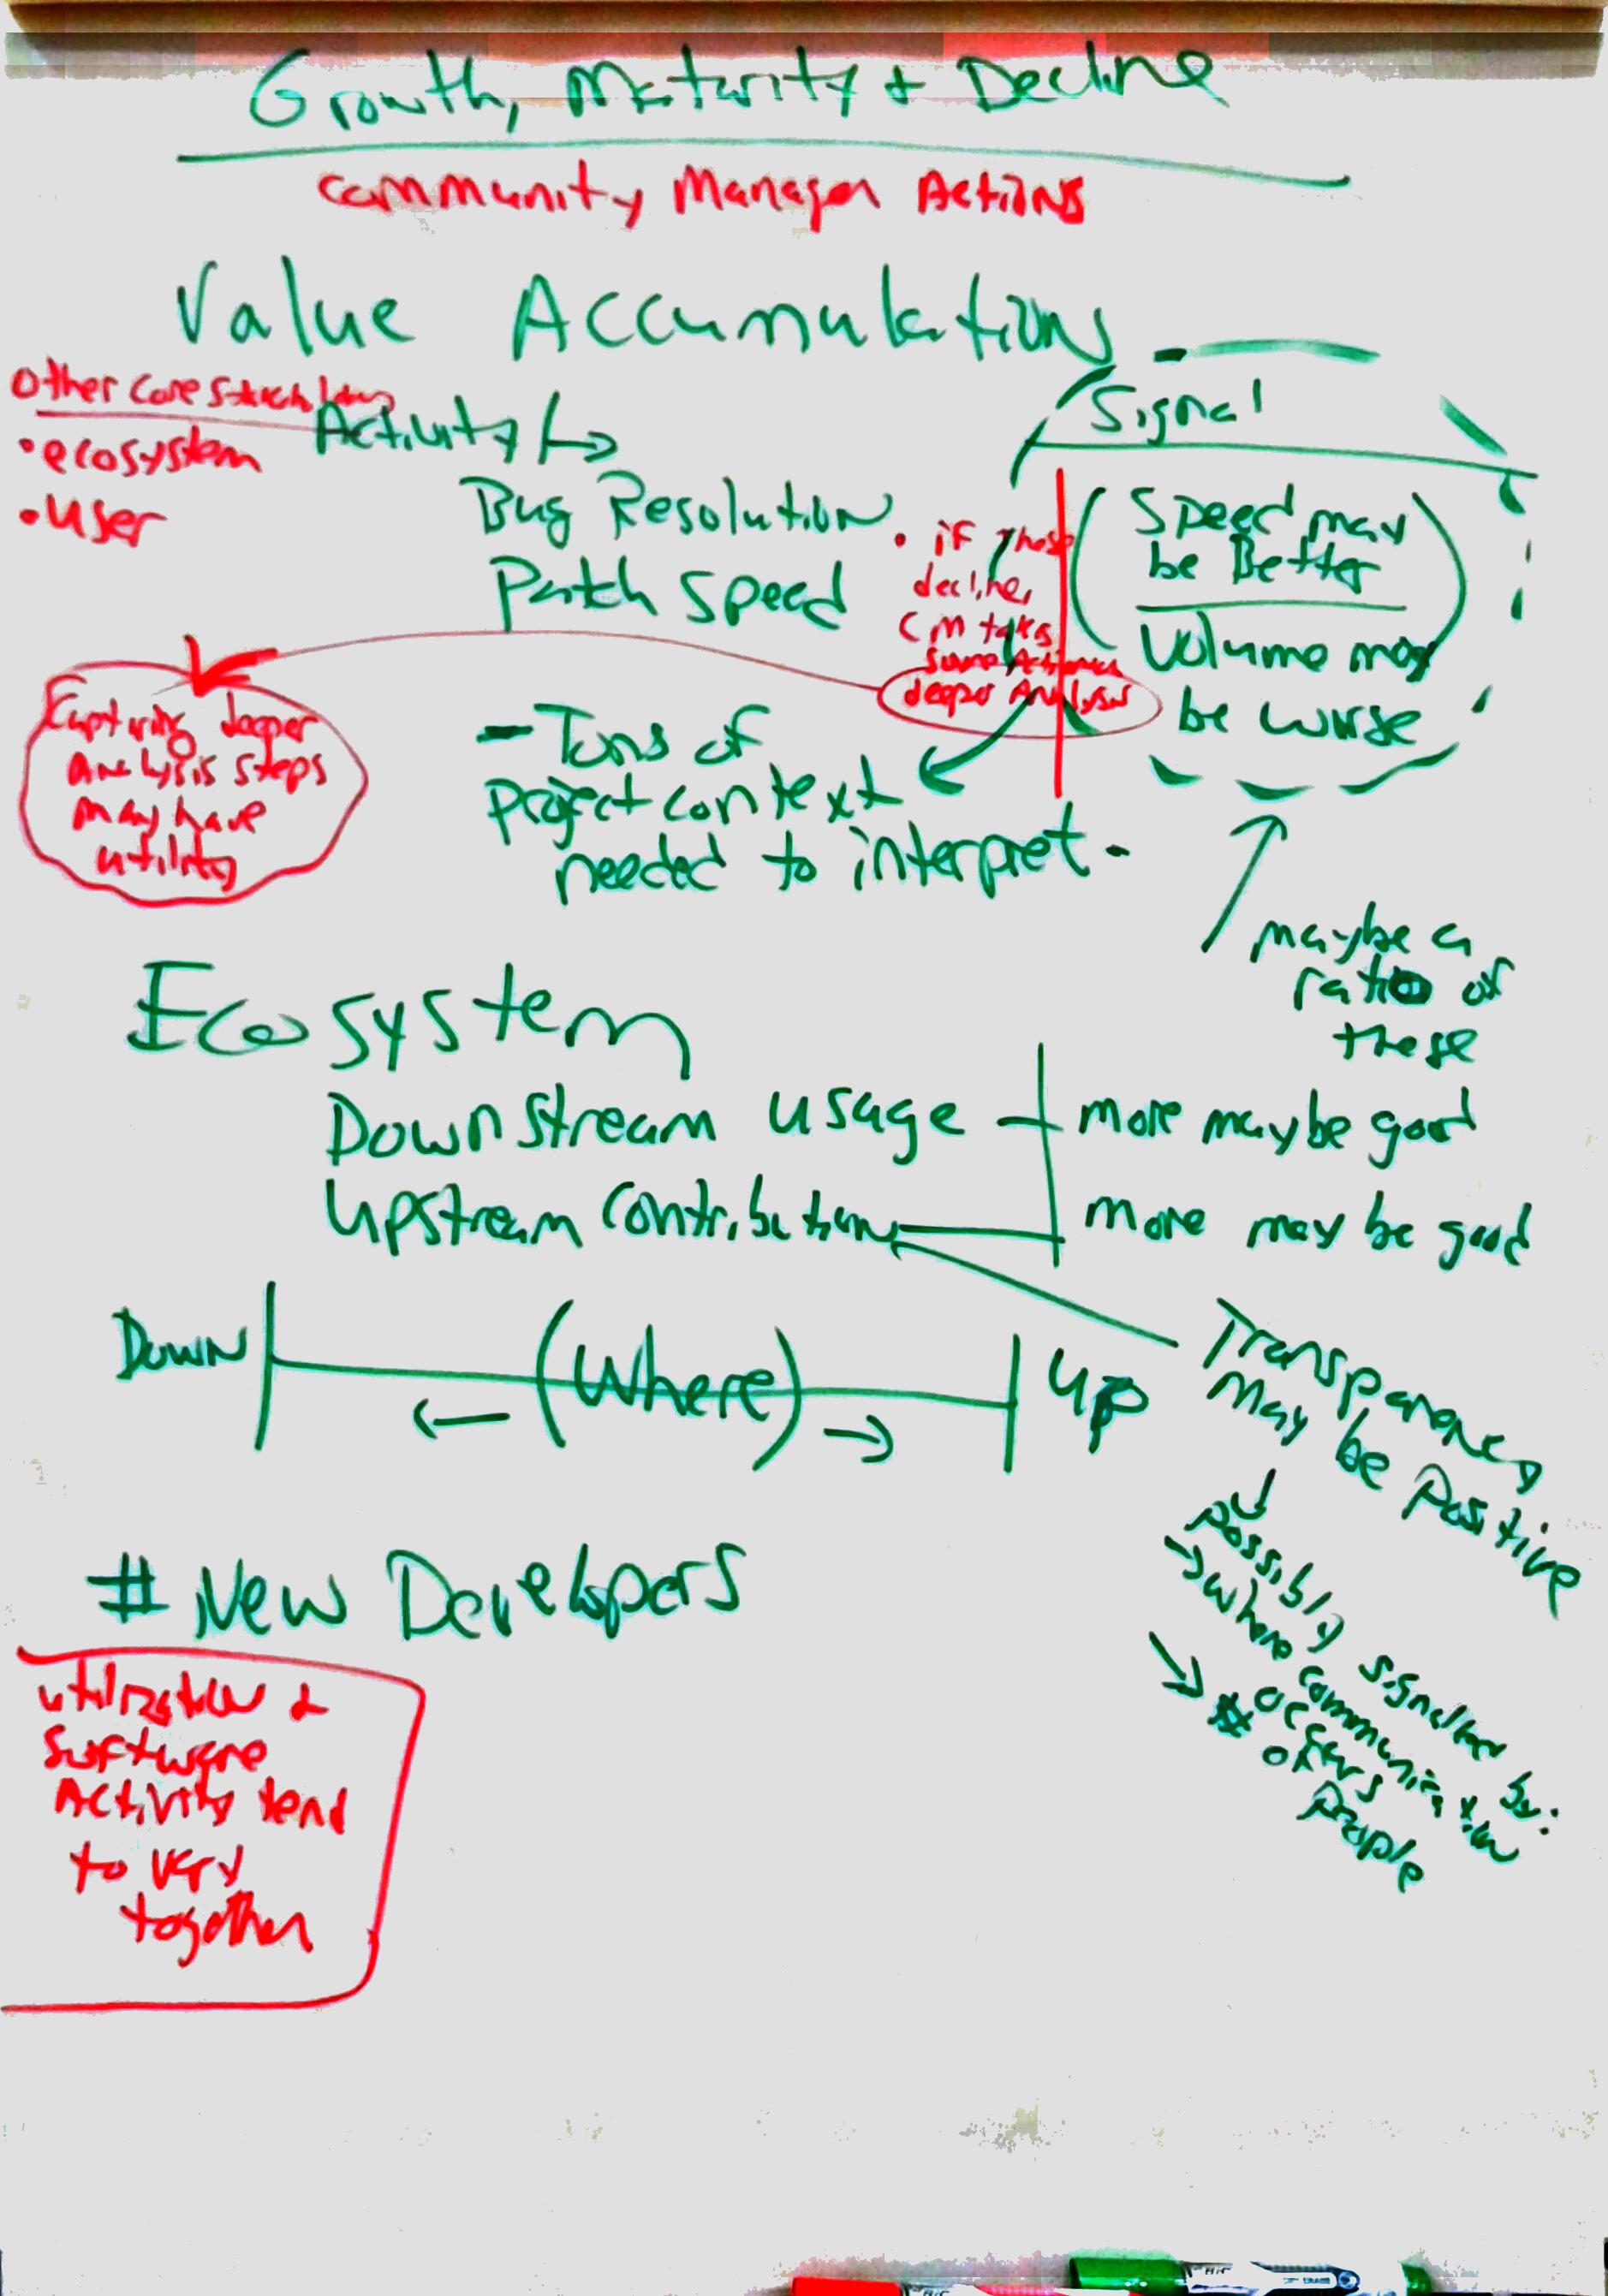 Growth, Maturity & Decline
Community Manager Actions
Value Accumulation
Other Core Stakeholders
• ecosystem
• User
Activity
Bug Resolution
Patch Speed
• if these
decline,
CM takes
some Action
deeper Analysis
Signal
Speed may
be Better
Volume may
be worse
Capturing deeper
analysis steps
may have
utility
- Tons of
project context
needed to interpret -
maybe a
ratio of
these
Ecosystem
Downstream usage
more maybe good
Upstream Contributions
more may be good
Down
(Where)
Up
Transparency
May be Positive
Possibly signaled by:
where communication
occurs
# offers
People
# New Developers
utilization &
Software
Activity tend
to vary
together